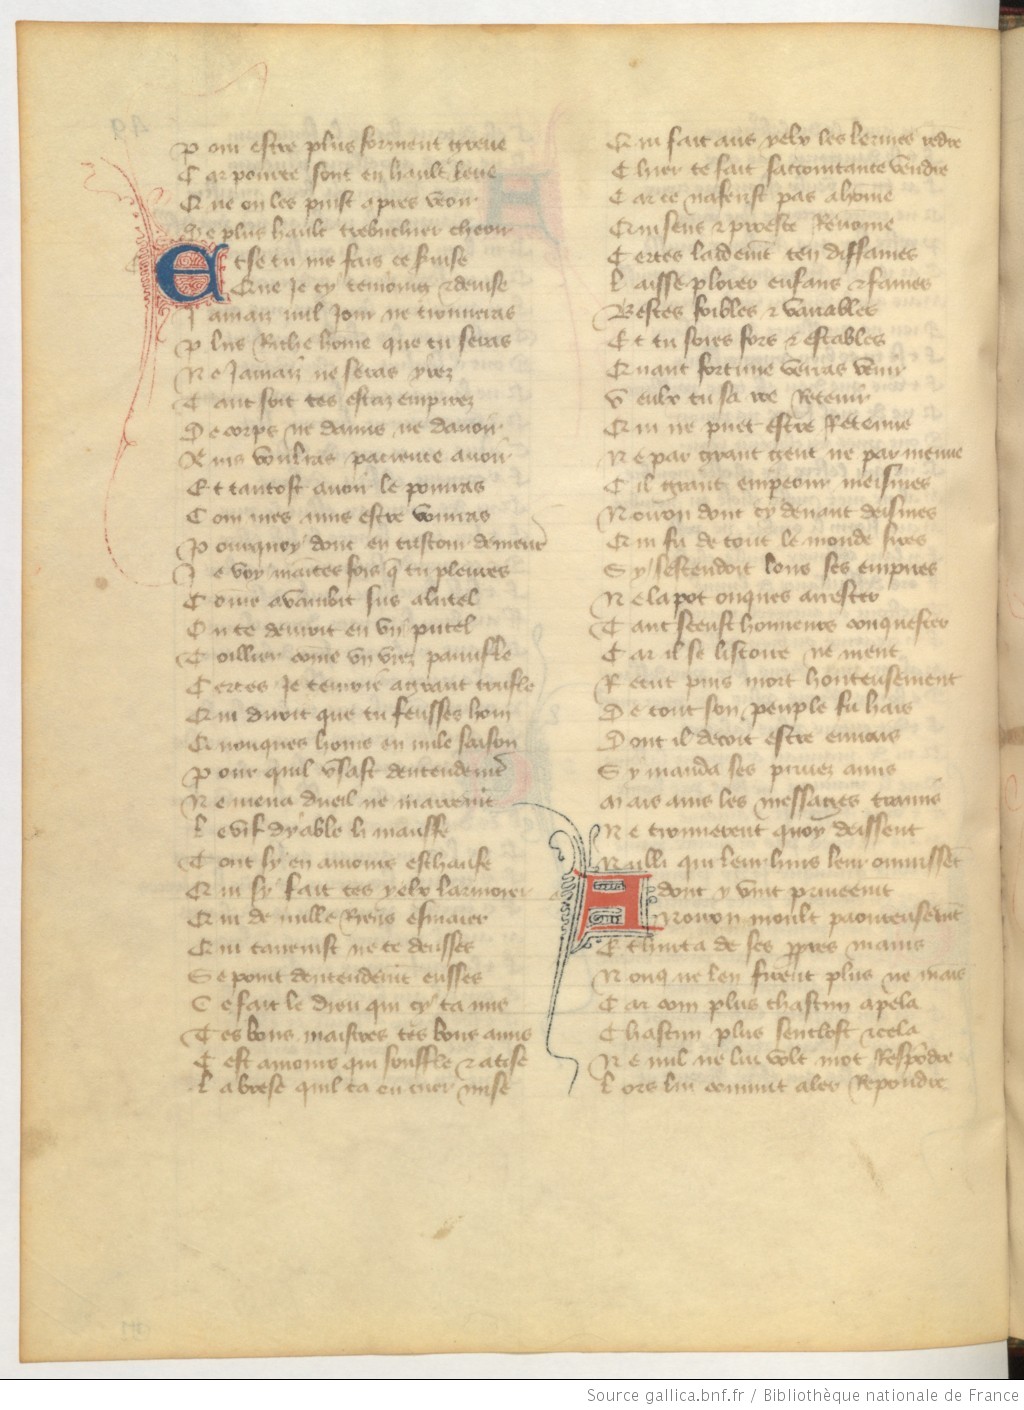 P our estre plus forment greue
C ar pource sont en hault leue
Q ue on les puist apres veoir
De plus hault trebuchier cheoir
E t se tu me fais ce seruise
Que Je cy temoing & deuise
J amaiz nul Jour ne trouueras
P lus Riche home que tu seras
N e Jamaiz ne seras yrez
T ant soit tes estaz empirez
De corps ne damis ne dauoir
M ais vouldras pacience auoir
Et tantost auoir le pourras
C om mes amis estre vourras
P ourquoy dont en tristour demeures
J e voy maītes fois q̄ tu pleures
C ome alambit sus alutel
O n te deuroit en vng putel
T oillier come vng viez panufle
C ertes Je tenroie a grant trufle
Qui diroit que tu feusses hom
Q uonques homs en nule saison
P our quil vsast dentendemēt
N e mena dueil ne marremēt
L e vif dyable li mauffe
T ont sy en amours eschaufe
Q ui sy fait tes yelx larmoier
Q ui de nulle Riens esmaier
Q ui tauenist ne te deusses
Se point dentendemēt eusses
C e fait le dieu qui cy ta mis
T es bons maistres tes bons amis
C est amours qui souffle & atise
L a brese quil ta ou cuer mise
Q ui fait aus yelx les lermes rēdre
C hier te fait saccointance vendre
C ar ce naferist pas a home
Q ui sens & proesce Renome
C ertes laidemēt ten diffames
L aisse plorer enfans & fames
Bestes foibles & variables
E t tu soies fors & estables
Q uant fortune verras venir
V eulx tu sa roe Retenir
Q ui ne puet estre Retenue
N e par grant gent ne par menue
C il grant empeour meismes
N oiron dont cy deuant deismes
Q ui fu de tout le monde sires
S y sestendoit loins ses empires
N e la pot onques arrester
T ant sceust honneurs conquester
C ar il se listoire ne ment
R ecut puis mort honteusement
De tout son peuple fu hais
Dont il deuoit estre enuais
S y manda ses priuez amis
M ais ains les messages tramis
N e trouuerent quoy deissent
N ulli qui leur huis leur ouurissēt
A dont y vint priueemēt
Noiron moult paoureusemēt
E t hurta de ses ppres mains
N onq̄ ne len firent plus ne mais
C ar com plus chascun apela
C hascun plus senclost & cela
N e nul ne lui volt mot Respōdre
L ors lui conuint aler Repondre
Source gallica.bnf.fr / Bibliothèque nationale de France